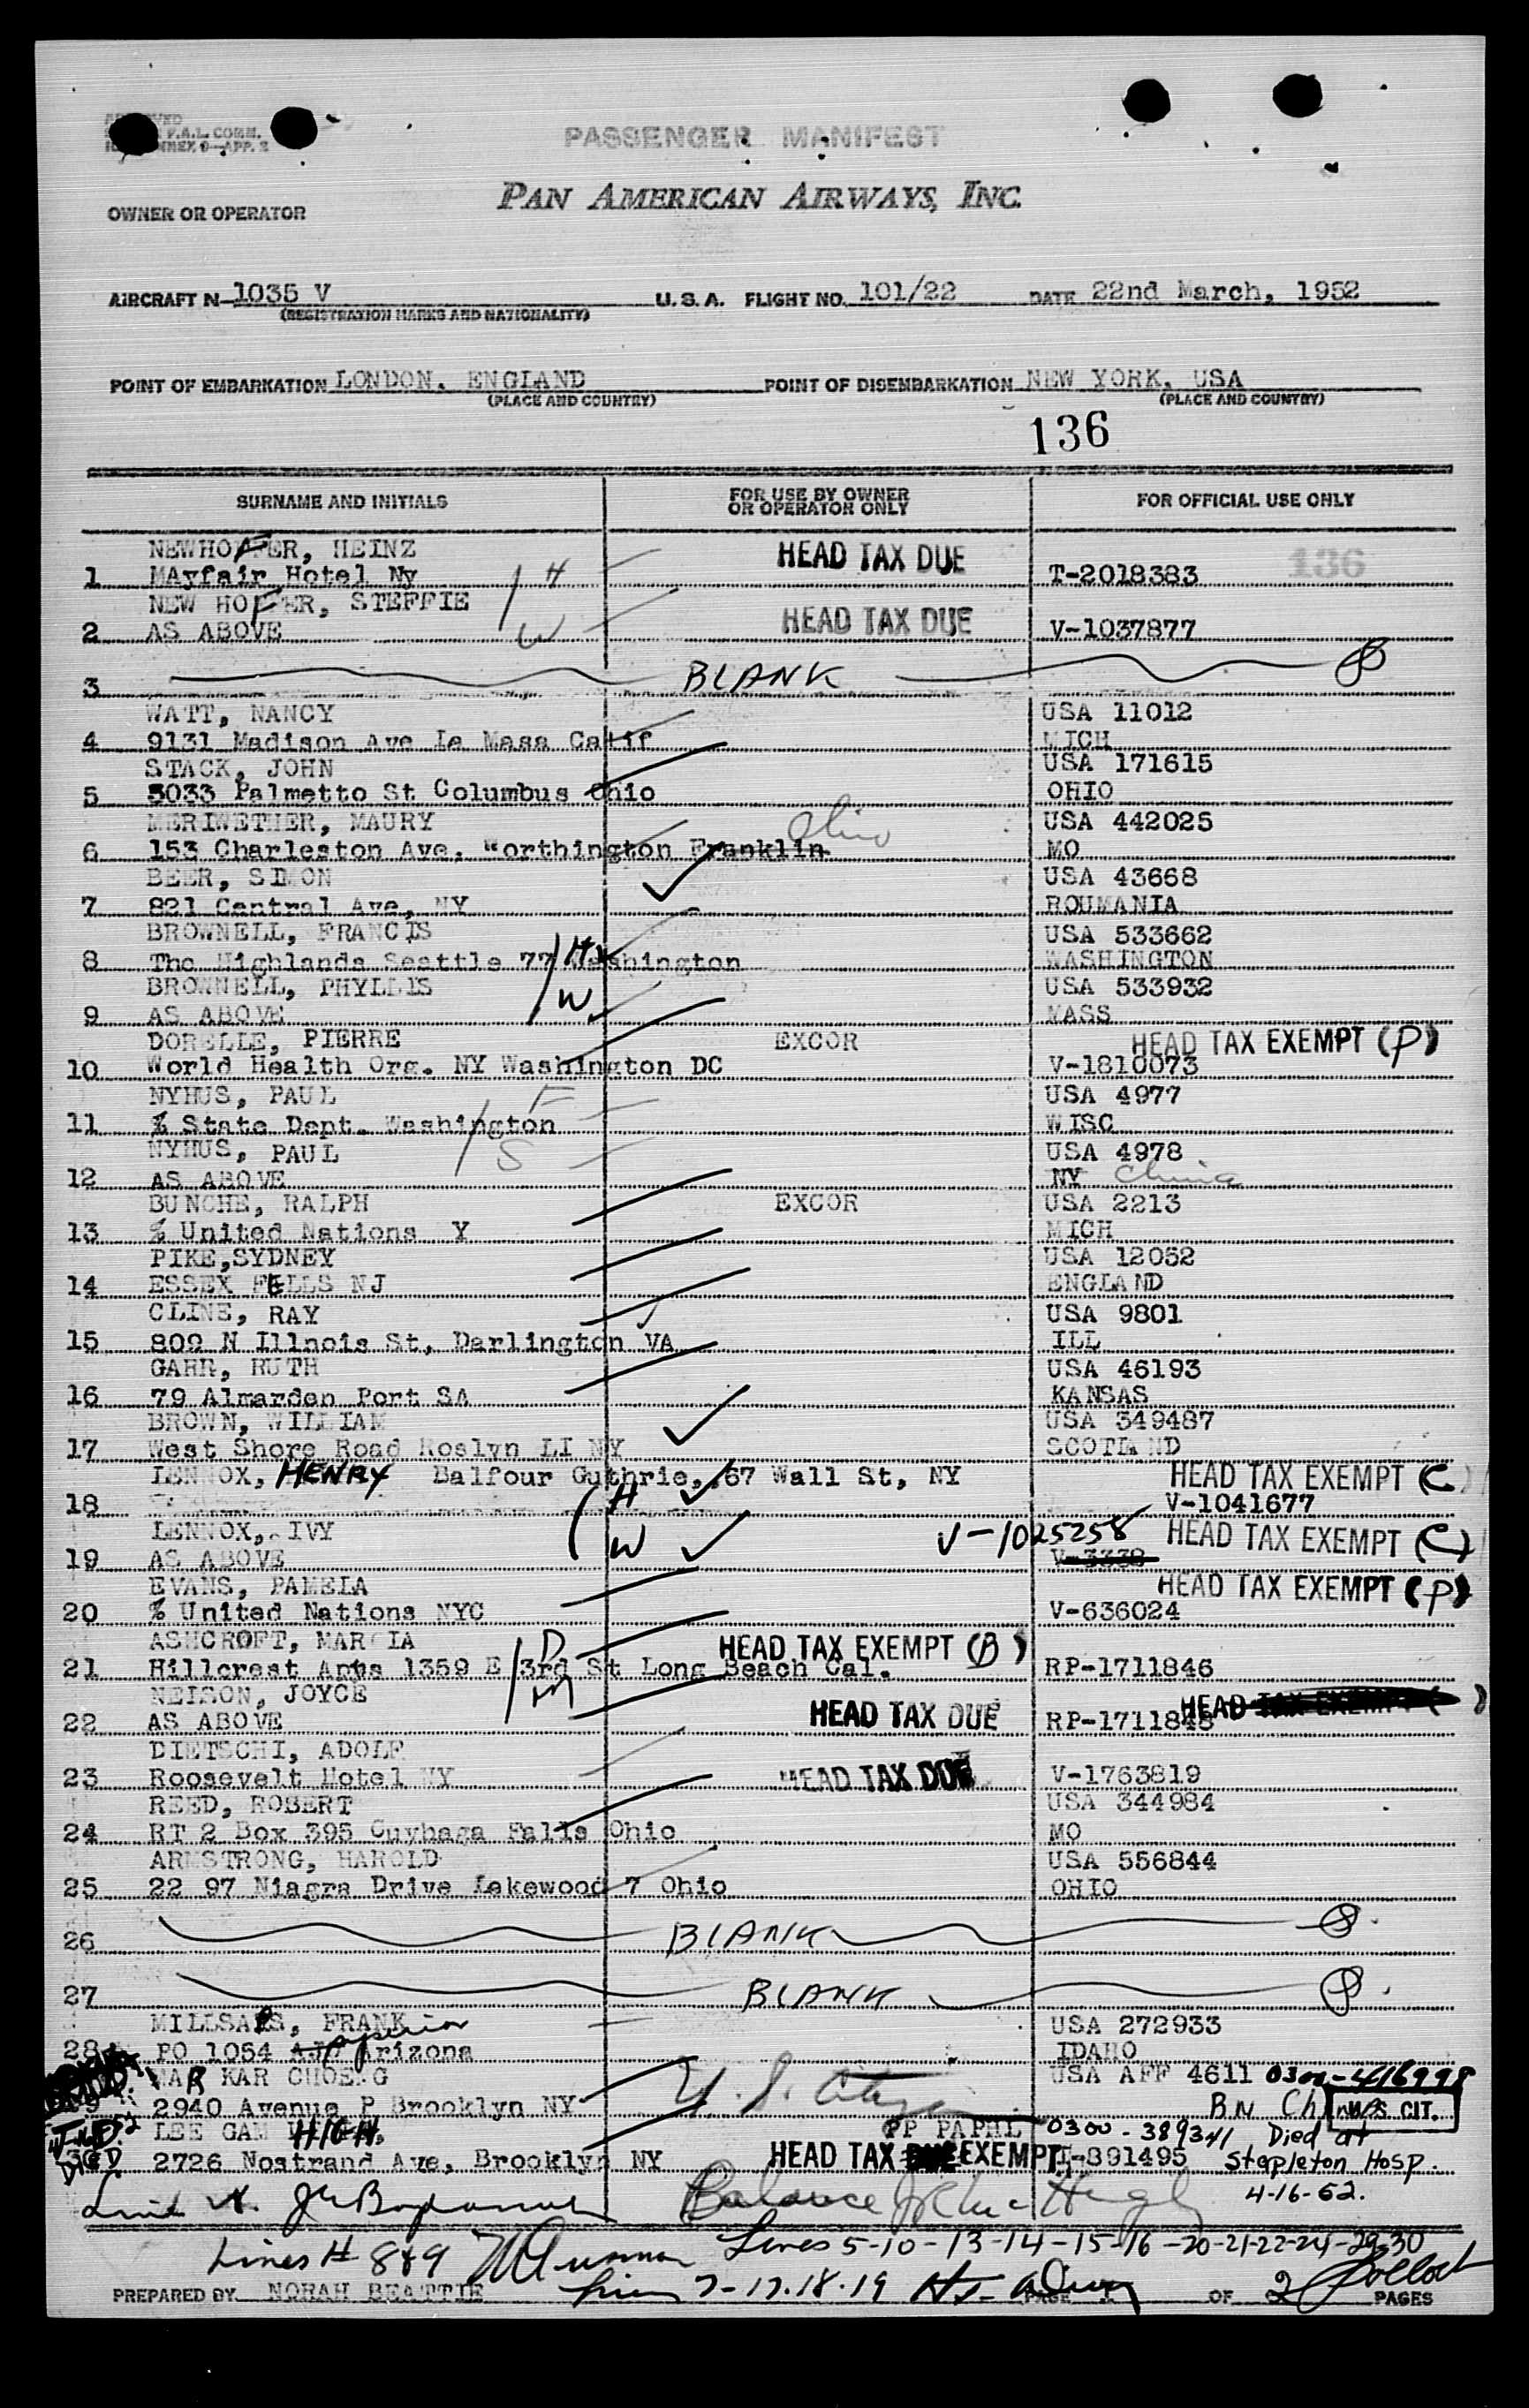 PASSENGER MANIFEST
PAN AMERICAN AIRWAYS, INC.
OWNER OR OPERATOR
AIRCRAFT N-1035 V U. S. A. FLIGHT NO. 101/22 DATE 22nd March, 1952
(REGISTRATION MARKS AND NATIONALITY)
POINT OF EMBARKATION LONDON, ENGLAND POINT OF DISEMBARKATION NEW YORK, USA
(PLACE AND COUNTRY) (PLACE AND COUNTRY)
136
SURNAME AND INITIALS FOR USE BY OWNER OR OPERATOR ONLY FOR OFFICIAL USE ONLY
NEWHOFER, HEINZ HEAD TAX DUE 136
1 MAyfair Hotel Ny H T-2018383
NEW HOFER, STEFFIE HEAD TAX DUE
2 AS ABOVE W V-1037877
3 BLANK
WATT, NANCY USA 11012
4 9131 Madison Ave La Mesa Calif MICH
STACK, JOHN USA 171615
5 3033 Palmetto St Columbus Ohio OHIO
MERIWETHER, MAURY Ohio USA 442025
6 153 Charleston Ave. Worthington Franklin MO
BEER, SIMON USA 43668
7 821 Central Ave, NY ROUMANIA
BROWNELL, FRANCIS USA 533662
8 The Highlands Seattle 77 Washington H WASHINGTON
BROWNELL, PHYLLIS USA 533932
9 AS ABOVE W MASS
DORELLE, PIERRE EXCOR HEAD TAX EXEMPT (P)
10 World Health Org. NY Washington DC V-1810073
NYHUS, PAUL F USA 4977
11 % State Dept. Washington WISC
NYHUS, PAUL S USA 4978
12 AS ABOVE NY China
BUNCHE, RALPH EXCOR USA 2213
13 % United Nations Y MICH
PIKE,SYDNEY USA 12052
14 ESSEX FELLS NJ ENGLAND
CLINE, RAY USA 9801
15 809 N Illnois St, Darlington VA ILL
GAHR, RUTH USA 46193
16 79 Almarden Port SA KANSAS
BROWN, WILLIAM USA 349487
17 West Shore Road Roslyn LI NY SCOTLAND
LENNOX, HENRY Balfour Guthrie, 67 Wall St, NY HEAD TAX EXEMPT (C)
18 H V-1041677
LENNOX, IVY V-1025258 HEAD TAX EXEMPT (C)
19 AS ABOVE W V-3338
EVANS, PAMELA HEAD TAX EXEMPT (P)
20 % United Nations NYC V-636024
ASHCROFT, MARCIA D HEAD TAX EXEMPT (B)
21 Hillcrest Apts 1359 E 3rd St Long Beach Cal. RP-1711846
NEISON, JOYCE M HEAD TAX DUE HEAD TAX EXEMPT ( )
22 AS ABOVE RP-1711848
DIETSCHI, ADOLF
23 Roosevelt Hotel NY HEAD TAX DUE V-1763819
REED, ROBERT USA 344984
24 RT 2 Box 395 Cuyhaga Falls Ohio MO
ARMSTRONG, HAROLD USA 556844
25 22 97 Niagra Drive Lakewood 7 Ohio OHIO
26 BLANK
27 BLANK
MILLSAPS, FRANK USA 272933
28 PO 1054 Superior Arizona IDAHO
MAR KAR CHOENG USA AFF 4611 0300-416998
2940 Avenue P Brooklyn NY U. S. BN Ch CIT.
LEE GAM HIGH, PP PAPHL 0300-389341 Died at
30 2726 Nostrand Ave, Brooklyn NY HEAD TAX DUE EXEMPT T-391495 Stapleton Hosp.
4-16-52.
Balance
Lines # 8&9 Lines 5-10-13-14-15-16-20-21-22-24-29-30
7-17-18-19
PREPARED BY NORAH BEATTIE PAGE OF 2 PAGES